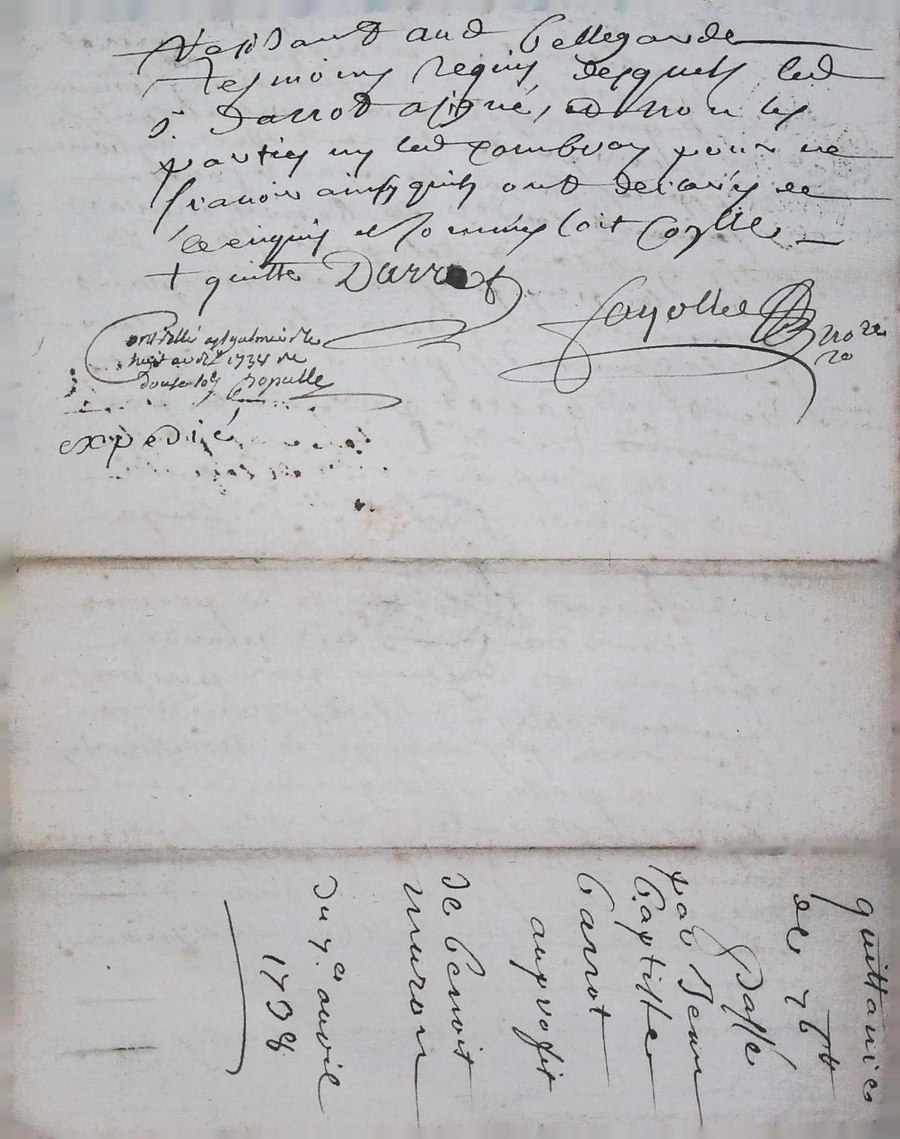 Residant aud bellegarde
Tesmoins requis desquels led
s. Darrot a signé, et non les
parties ny led pour ne
scavoir ainsy quils ont declaré de
ce enquis et sommés soit
+ quitte Darrot
Fayolle no.re
ro
huit avril 1738 Re
Douse sols
expedié
quittance
de
passé
par Jean
Baptiste
barrot
au profit
de benoit
muron
du 7.e avril
1738